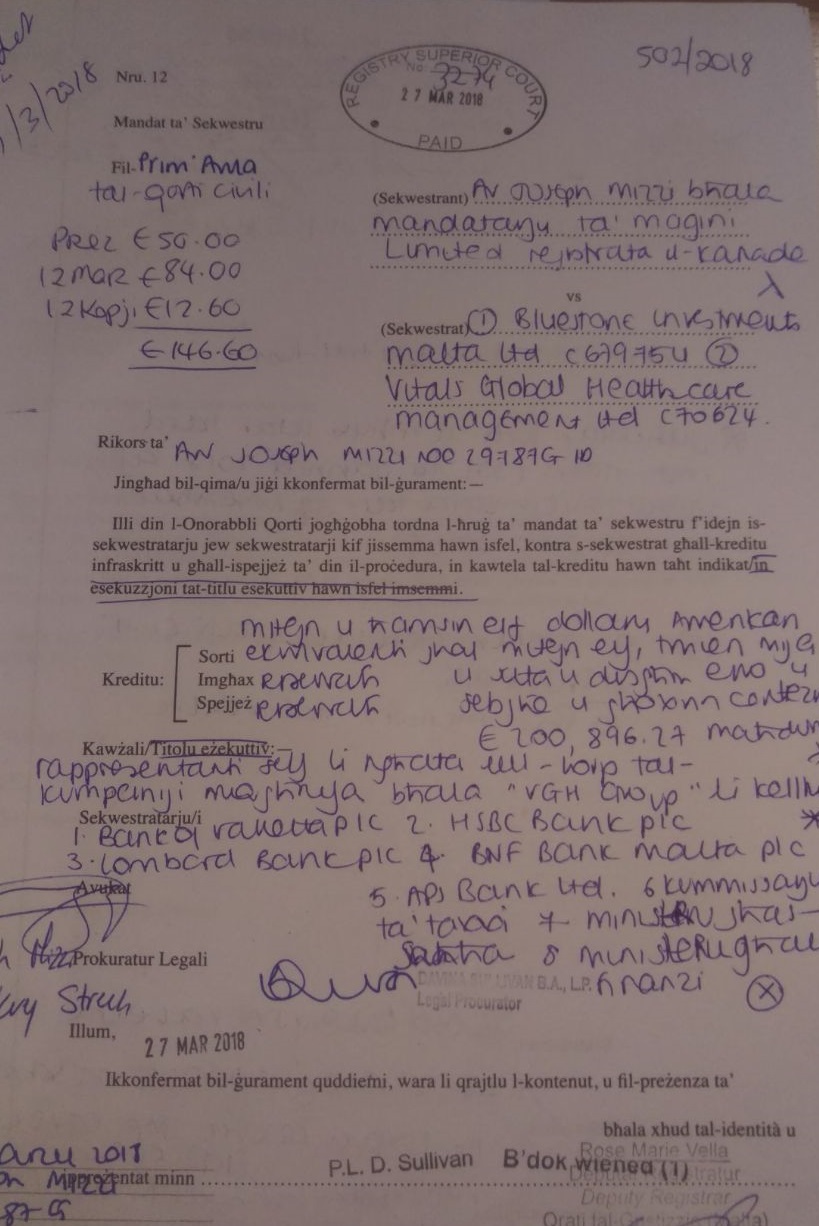 /3/2018
Nru. 12
REGISTRY SUPERIOR COURT
No: 3274
27 MAR 2018
PAID
502/2018
Mandat ta' Sekwestru
Fil-Prim' Awla
tal-qorti civili
PREZ €50.00
12 MAR €84.00
12 Kopji €12.60
€146.60
(Sekwestrant) AV Joseph Mizzi bħala
mandatarju ta' Magini
Limited reġistrata il-Kanada
vs
(Sekwestrat) ① Bluestone Investments
Malta Ltd C67975 ②
Vitals Global Healthcare
Management Ltd C70624.
Rikors ta' AV Joseph Mizzi noe 29787G ID
Jingħad bil-qima/u jiġi kkonfermat bil-ġurament:—
Illi din l-Onorabbli Qorti jogħġobha tordna l-ħruġ ta' mandat ta' sekwestru f'idejn is-
sekwestratarju jew sekwestratarji kif jissemma hawn isfel, kontra s-sekwestrat għall-kreditu
infraskritt u għall-ispejjeż ta' din il-proċedura, in kawtela tal-kreditu hawn taħt indikat/in
esekuzzjoni tat-titlu esekuttiv hawn isfel imsemmi.
mitejn u ħamsin elf dollaru Amerikan
Kreditu:
Sorti ekwivalenti għal mitejn elf, tmien mija
Imgħax u sitta u disgħin ewro u
Spejjeż sebgħa u għoxrin ċenteżmu
€200,896.27
Kawżali/Titolu eżekuttiv:—
rappreżentanti self li ngħata lill-korp tal-
kumpaniji magħrufa bħala "VGH Group" li kellhom
Sekwestratarju/i
1. Bank of Valletta PLC 2. HSBC Bank plc
3. Lombard Bank plc 4. BNF Bank Malta plc
Avukat
5. APS Bank Ltd. 6 Kummissarju
ta' taxxi 7 ministeru għas-
Saħħa 8 ministeru għall
Prokuratur Legali
finanzi
DAVINA SULLIVAN B.A., L.P.
Legal Procurator
Illum,
27 MAR 2018
Ikkonfermat bil-ġurament quddiemi, wara li qrajtlu l-kontenut, u fil-preżenza ta'
bħala xhud tal-identità u
2018
Mizzi
Ippreżentat minn P.L. D. Sullivan B'dok wieħed (1)
Rose Marie Vella
Deputy Registrar